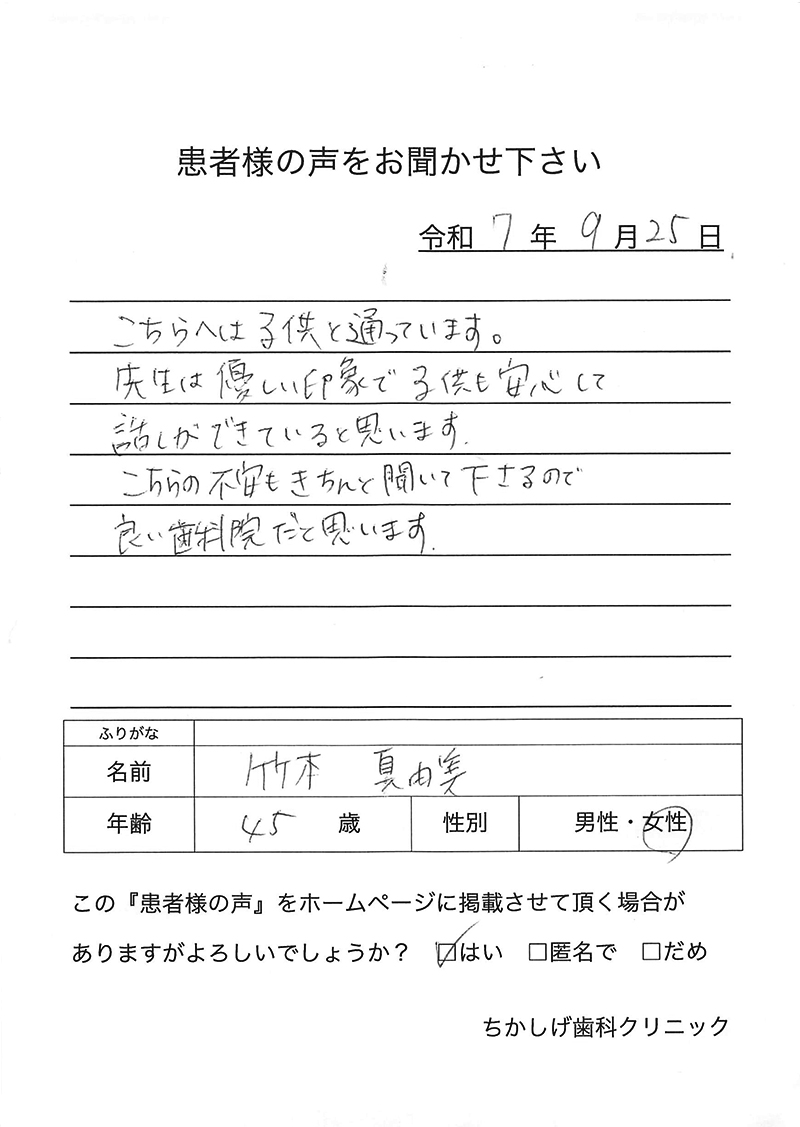 患者様の声をお聞かせ下さい
令和 7 年 9 月 25 日
こちらへは子供と通っています。
先生は優しい印象で子供も安心して
話しができていると思います.
こちらの不安もきちんと聞いて下さるので
良い歯科院だと思います.
ふりがな
名前 竹本 真由美
年齢 45 歳 性別 男性・女性
この『患者様の声』をホームページに掲載させて頂く場合が
ありますがよろしいでしょうか? ☑はい □匿名で □だめ
ちかしげ歯科クリニック